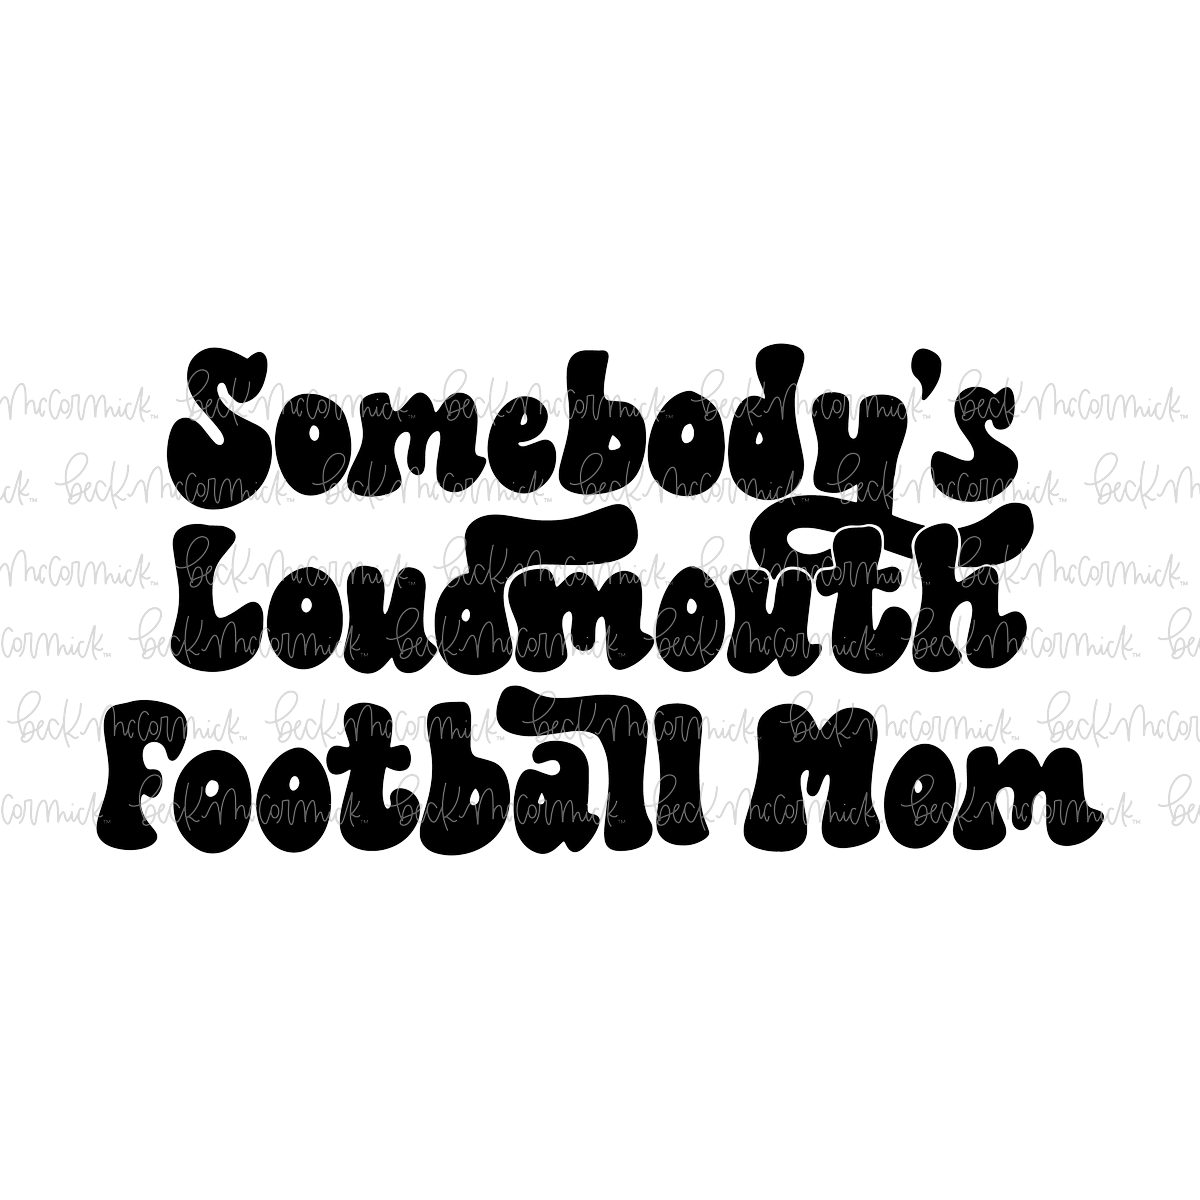 Somebody's
Loudmouth
Football Mom
beck mccormick™